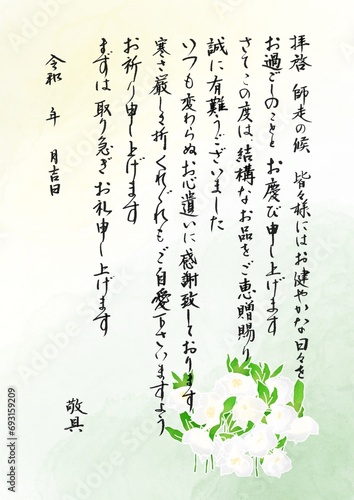 拝啓 師走の候 皆々様にはお健やかな日々を
お過ごしのことと お慶び申し上げます
さてこの度は 結構なお品をご恵贈賜り
誠に有難うございました
いつも変わらぬお心遣いに感謝致しております
寒さ厳しき折 くれぐれもご自愛下さいますよう
お祈り申し上げます
まずは取り急ぎお礼申し上げます
敬具
令和 年 月吉日
Adobe Stock | #693159209